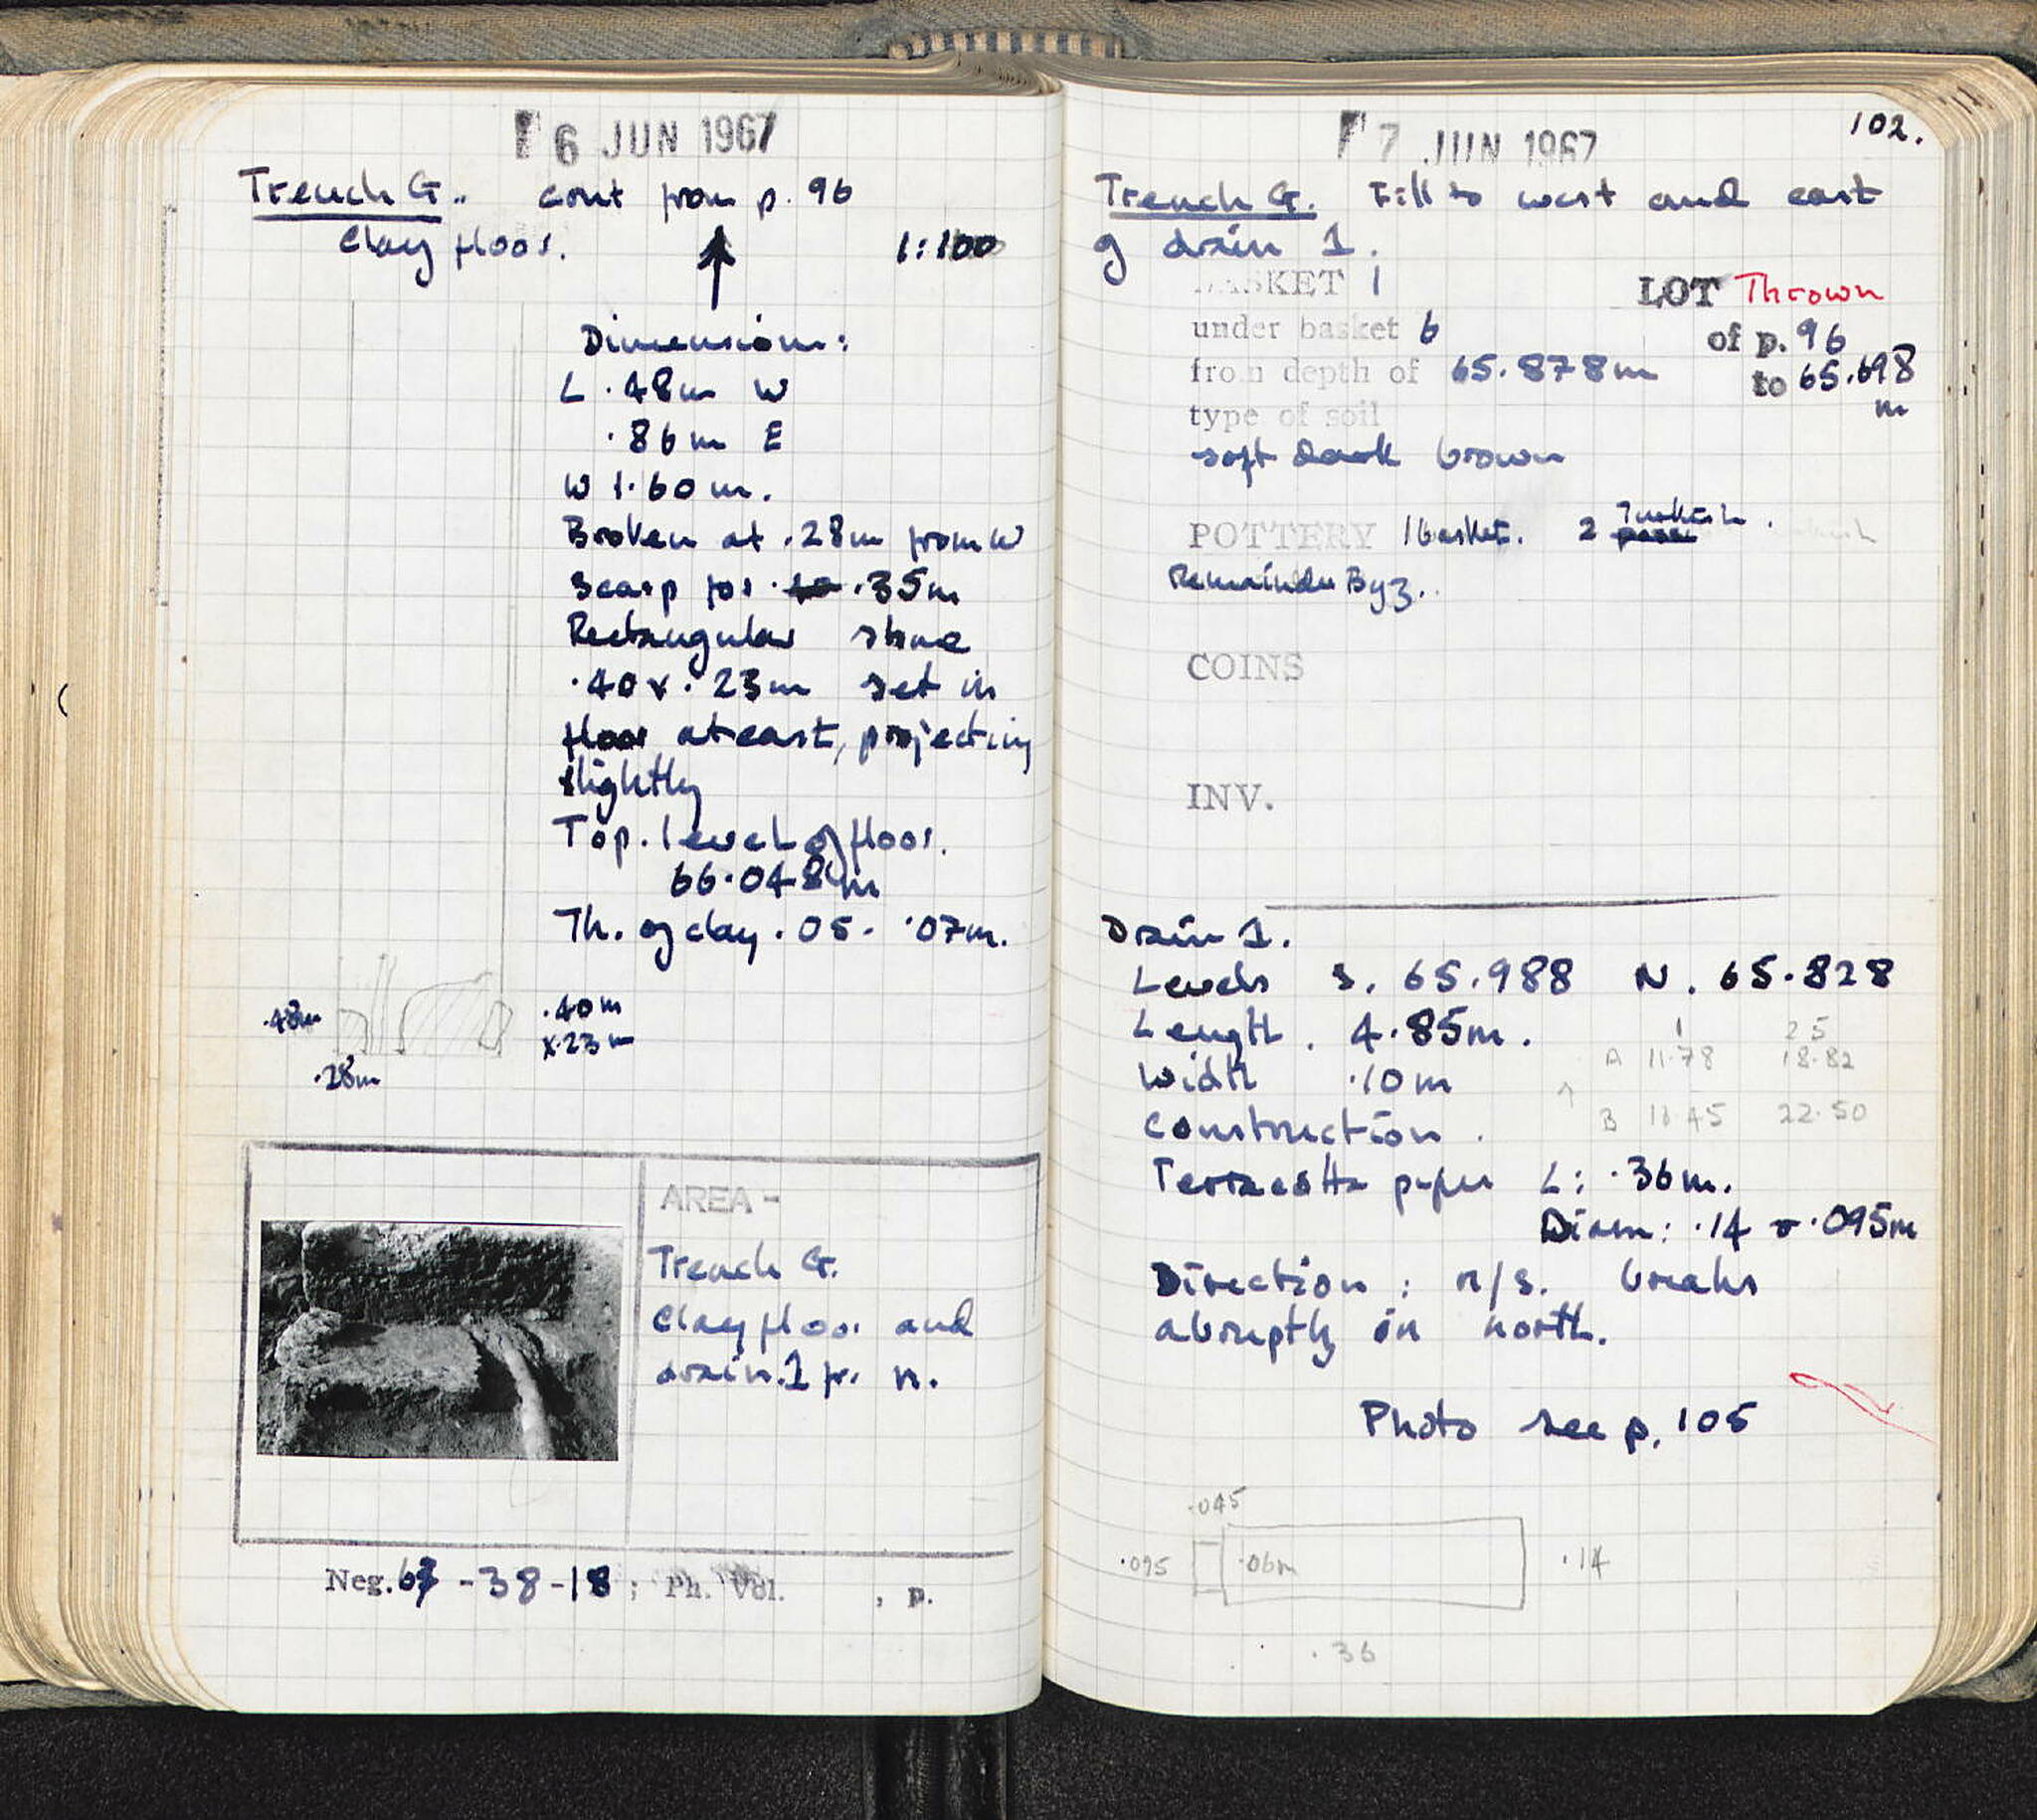 6 JUN 1967
Trench G.. cont from p. 96
Clay floor. 1:100
Dimensions:
L .48m W
.86m E
W 1.60m.
Broken at .28m from W
scarp for .35m
Rectangular stone
.40 x .23m set in
floor at east, projecting
slightly
Top. level of floor.
66.048m
Th. of clay .05 - .07m.
.48m
.40m
x.23m
.28m
AREA -
Trench G.
Clay floor and
drain.1 fr. n.
Neg. 67 -38-18 ; Ph. Vol. , p.
102.
7 JUN 1967
Trench G. Fill to west and east
of drain 1.
BASKET 1 LOT Thrown
under basket 6 of p. 96
from depth of 65.878m to 65.698
m
type of soil
soft dark brown
POTTERY 1 basket. 2 Turkish.
Remainder Byz.
COINS
INV.
Drain 1.
Levels S. 65.988 N. 65.828
Length. 4.85m.
1 25
A 11.78 18.82
Width .10m
B 22.50
Construction.
Terracotta pipes L: .36m.
Diam: .14 - .095m
Direction: n/s. breaks
abruptly in north.
Photo see p. 105
.045
.095 .06m .14
.36